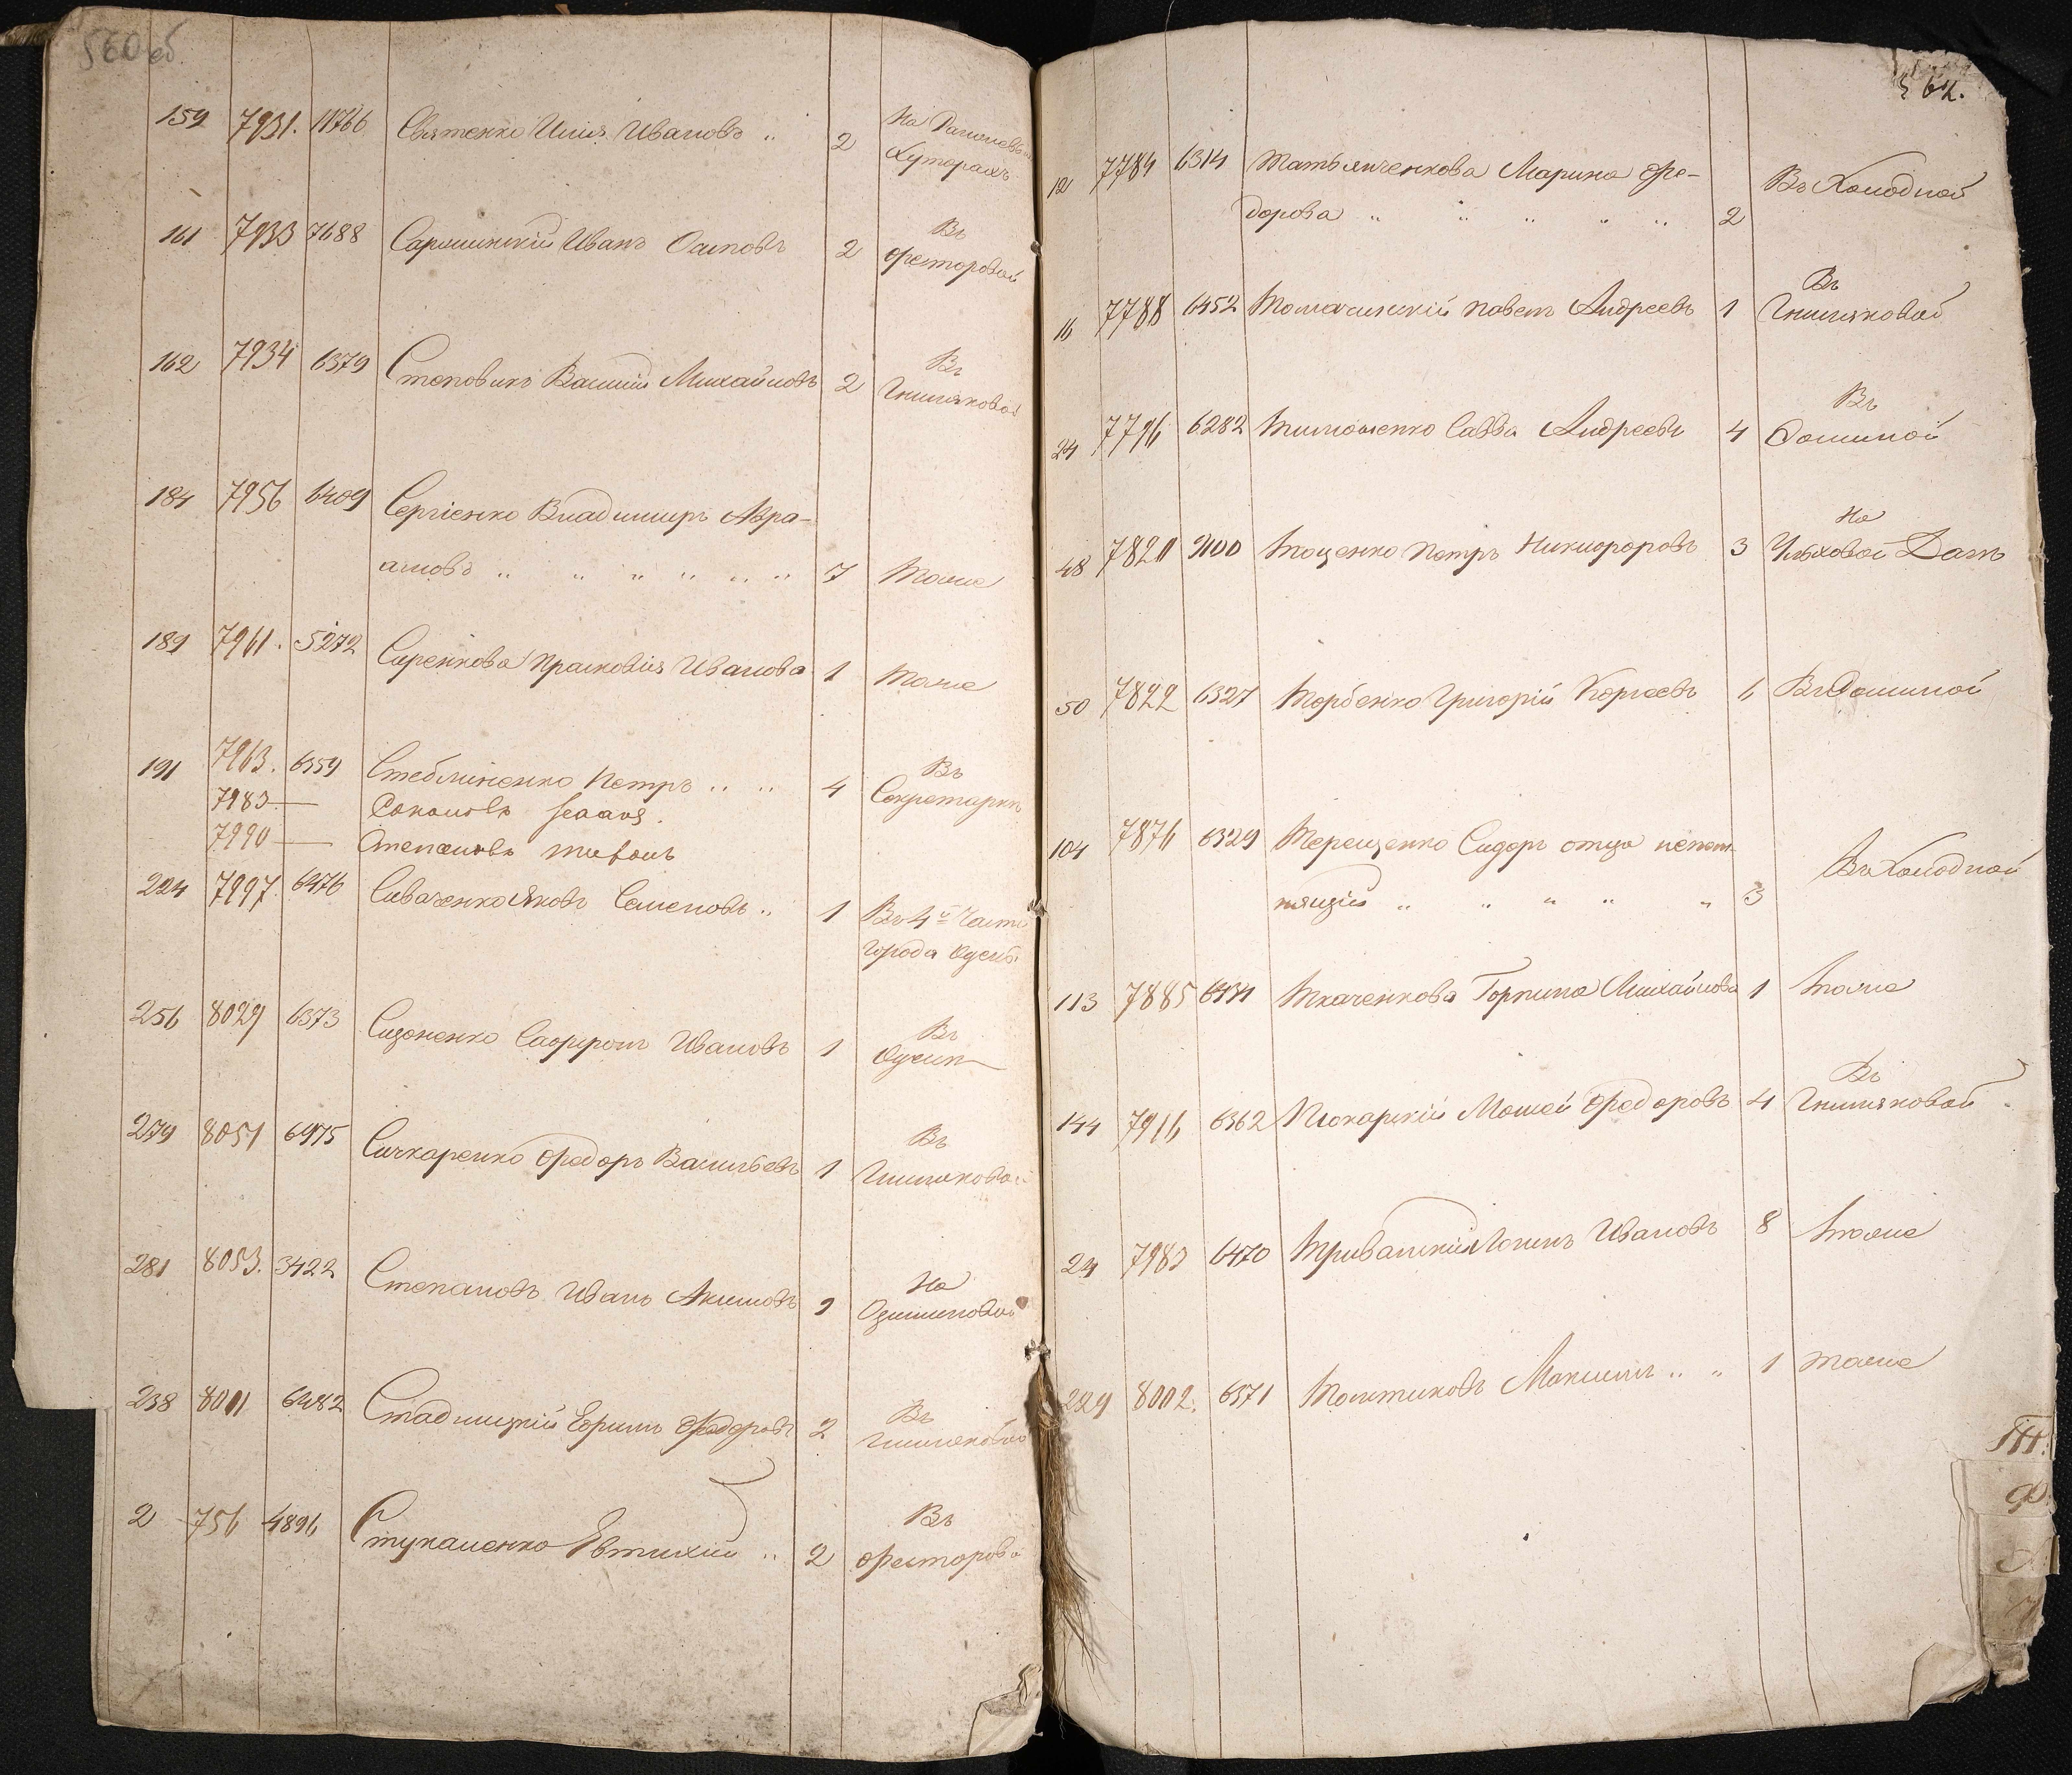 560 об
159 7931. 11766 Святенко Илья Ивановъ " 2 На
Хуторахъ
161 7933 7688 Иванъ Осиповъ 2 Въ
Фесторовой
162 7934 6379 Степовикъ Василій Михайловъ 2 Въ
Гниляковой
184 7956 6409 Сергіенко Владимиръ Авра-
амовъ " " " " " " 7 тоже
189 7961. 5272 Сиренкова Прасковія Иванова 1 тоже
191 7963. 6359 Стеблиненко Петръ " " 4 Въ
Секретаркѣ
7983 — Соколовъ
7990 — Степановъ
224 7997. 6476 Сиваченко Яковъ Семеновъ " 1 Въ 4й Части
города Одессы
256 8029 6373 Сизоненко Сафронъ Ивановъ 1 Въ
Одессѣ
279 8051 6975 Сичкаренко Федоръ Васильевъ 1 Въ
Гниляковой
281 8053. 3422 Степановъ Иванъ Акимовъ 9 На
238 8011 6482 Стадницкій Ефимъ Федоровъ 2 Въ
Гниляковой
2 756 4896 Стукаленко Евтихій " 2 Въ
Фесторовой
12 7784 6314 Татьянченкова Марина Фе-
дорова " " " " " 2 Въ Холодной
16 7788 6452 Томачинскій Павелъ Андреевъ 1 Въ
Гниляковой
24 7796 6282 Тимошенко Савва Андреевъ 4 Въ
Фоминой
48 7820 2100 Тоценко Петръ Никифоровъ 3 На
50 7822 6327 Торбенко Григорій Корнеевъ 6 Въ Фоминой
104 7876 6329 Терещенко Сидоръ отца непом-
нящій " " " " " 3 Въ Холодной
113 7885 6434 Ткаченкова Горпина Михайлова 1 тоже
144 7916 6362 Федоровъ 4 Въ
Гниляковой
24 7983 6470 Ивановъ 8 тоже
229 8002. 6371 Толстиковъ Максимъ " " 1 тоже
Ф.